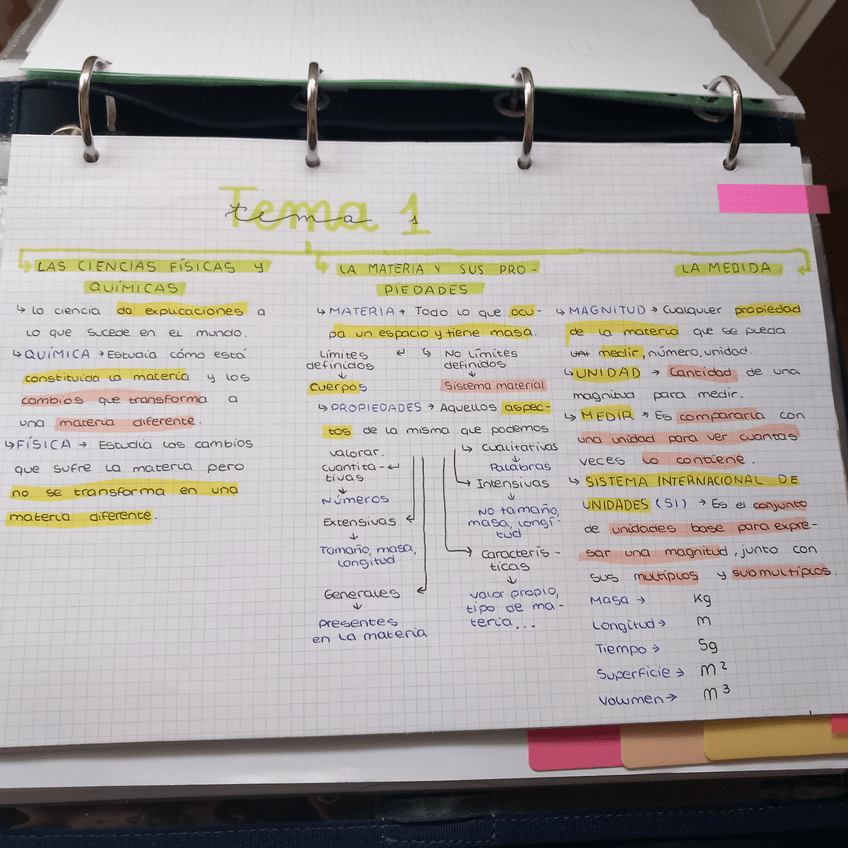 Tema 1
tema 1
LAS CIENCIAS FÍSICAS Y
QUÍMICAS
↳ La ciencia da explicaciones a
lo que sucede en el mundo.
↳ QUÍMICA → Estudia cómo está
constituida la materia y los
cambios que transforma a
una materia diferente.
↳ FÍSICA → Estudia los cambios
que sufre la materia pero
no se transforma en una
materia diferente.
LA MATERIA Y SUS PRO-
PIEDADES
↳ MATERIA → Todo lo que ocu-
pa un espacio y tiene masa.
Límites
definidos
↓
Cuerpos
No límites
definidos
↓
Sistema material
↳ PROPIEDADES → Aquellos aspec-
tos de la misma que podemos
valorar.
cuantita-
tivas
↓
Números
Extensivas
↓
Tamaño, masa,
longitud
Generales
↓
presentes
en la materia
cualitativas
↓
Palabras
Intensivas
↓
No tamaño,
masa, longi-
tud
caracterís-
ticas
↓
valor propio,
tipo de ma-
teria...
LA MEDIDA
↳ MAGNITUD → Cualquier propiedad
de la materia que se pueda
medir, número, unidad.
↳ UNIDAD → Cantidad de una
magnitud para medir.
↳ MEDIR → Es compararla con
una unidad para ver cuantas
veces lo contiene.
↳ SISTEMA INTERNACIONAL DE
UNIDADES (SI) → Es el conjunto
de unidades base para expre-
sar una magnitud, junto con
sus multiplos y submultiplos.
Masa → Kg
Longitud → m
Tiempo → Sg
Superficie → m²
Volumen → m³